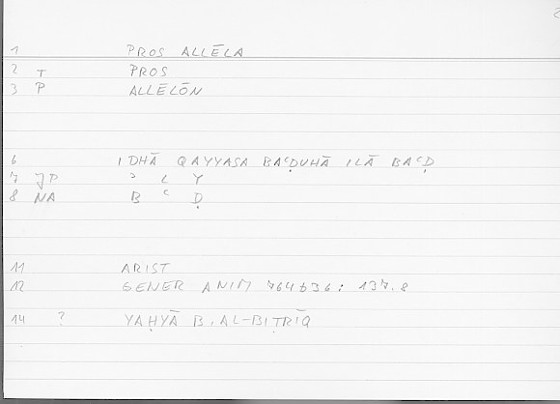 1 PROS ALLĒLA
2 T PROS
3 P ALLĒLŌN
6 IDHĀ QAYYASA BAʿḌUHĀ ILĀ BAʿḌ
7 JP ʾ L Y
8 NA B ʿ Ḍ
11 ARIST
12 GENER ANIM 764b36: 137.8
14 ? YAḤYĀ B. AL-BIṬRĪQ